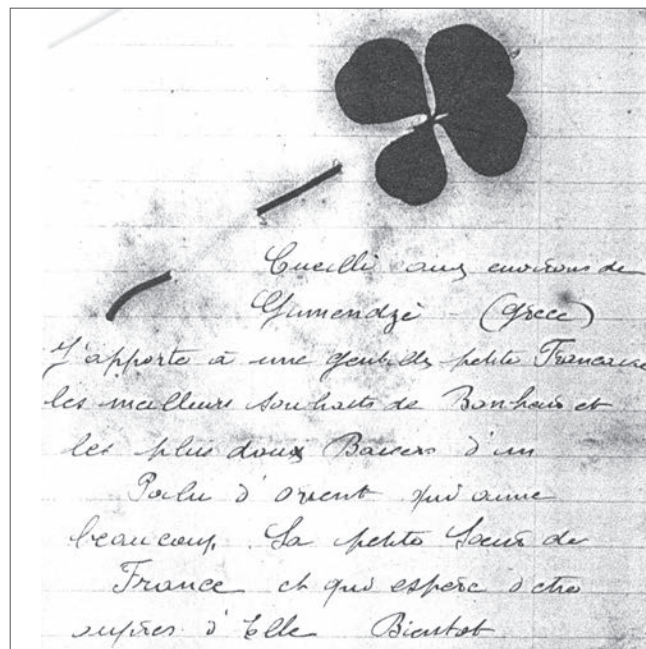 Cueilli aux environs de
Gumendzé - (Grece)
J'apporte à une gentille petite Francaise
les meilleurs souhaits de Bonheur et
les plus doux Baisers d'un
Poilu d'orient qui aime
beaucoup. Sa petite Soeur de
France et qui espere d'etre
aupres d'Elle Bientot